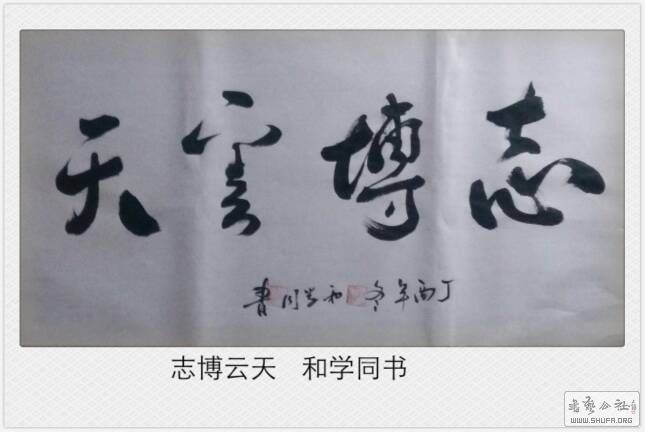 志博雲天
丁酉年冬 和学同書
志博云天 和学同书
書藝公社
WWW.SHUFA.ORG